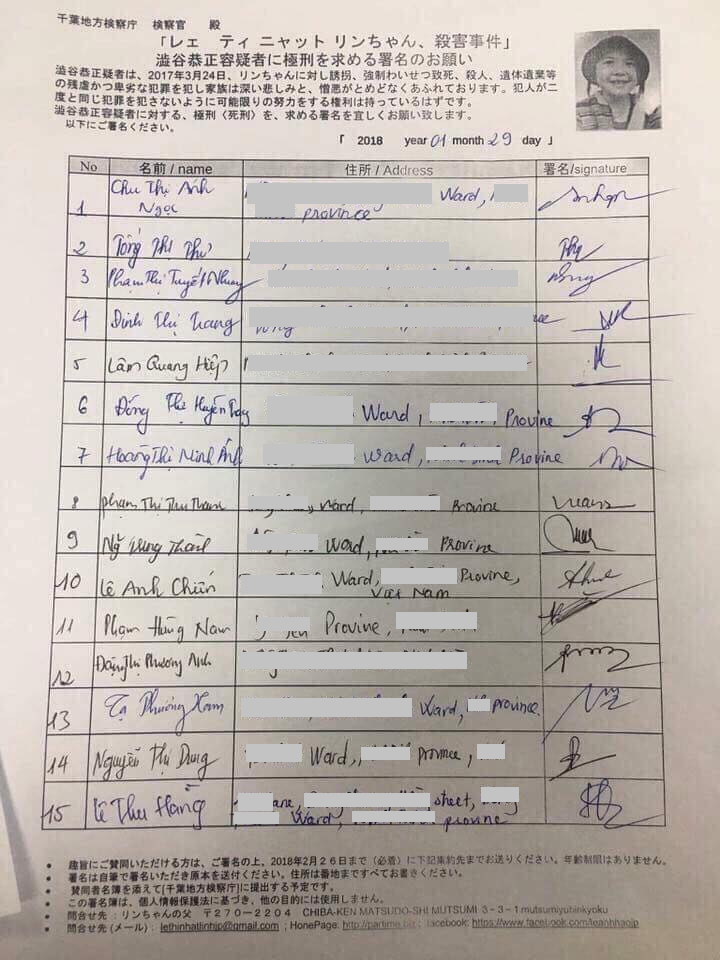 千葉地方検察庁 検察官 殿
「レェ ティ ニャット リンちゃん、殺害事件」
澁谷恭正容疑者に極刑を求める署名のお願い
澁谷恭正容疑者は、2017年3月24日、リンちゃんに対し誘拐、強制わいせつ致死、殺人、遺体遺棄等
の残虐かつ卑劣な犯罪を犯し家族は深い悲しみと、憎悪がとめどなくあふれております。犯人が二
度と同じ犯罪を犯さないように可能限りの努力をする権利は持っているはずです。
澁谷恭正容疑者に対する、極刑（死刑）を、求める署名を宜しくお願い致します。
以下にご署名ください。
「 2018 year 01 month 29 day 」
No 名前 / name 住所 / Address 署名/signature
1 Chu Thị Ánh Ngọc Ward, province
2 Tống Thị Thư
3 Phạm Thị Tuyết Nhung
4 Đinh Thị Trang
5 Lâm Quang Hiệp
6 Đồng Thị Huyền Ward, Provine
7 Hoàng Thị Minh Ánh Ward, Provine
8 Phạm Thị Thu Ward, Provine
9 Ward, Provine
10 Lê Anh Ward, Provine, Việt Nam
11 Phạm Hùng Nam Provine,
12 Đặng Thị Phương Anh
13 Tạ Phương Ward, province.
14 Nguyễn Thị Dung Ward, province,
15 Lê Thu Hằng sheet, Ward, province
• 趣旨にご賛同いただける方は、ご署名の上、2018年2月26日まで（必着）に下記集約先までお送りください。年齢制限はありません。
• 署名は自筆で署名いただき原本を送付ください。住所は番地まですべてお書きください。
• 賛同者名簿を添えて[千葉地方検察庁]に提出する予定です。
• この署名簿は、個人情報保護法に基づき、他の目的には使用しません。
• 問合せ先：リンちゃんの父 〒270－2204 CHIBA-KEN MATSUDO-SHI MUTSUMI 3－3－1 mutsumiyubinkyoku
• 問合せ先（メール）: lethinhatlinhjp@gmail.com ; HonePage: http://partime.biz ; facebook: https://www.facebook.com/leanhhaojp